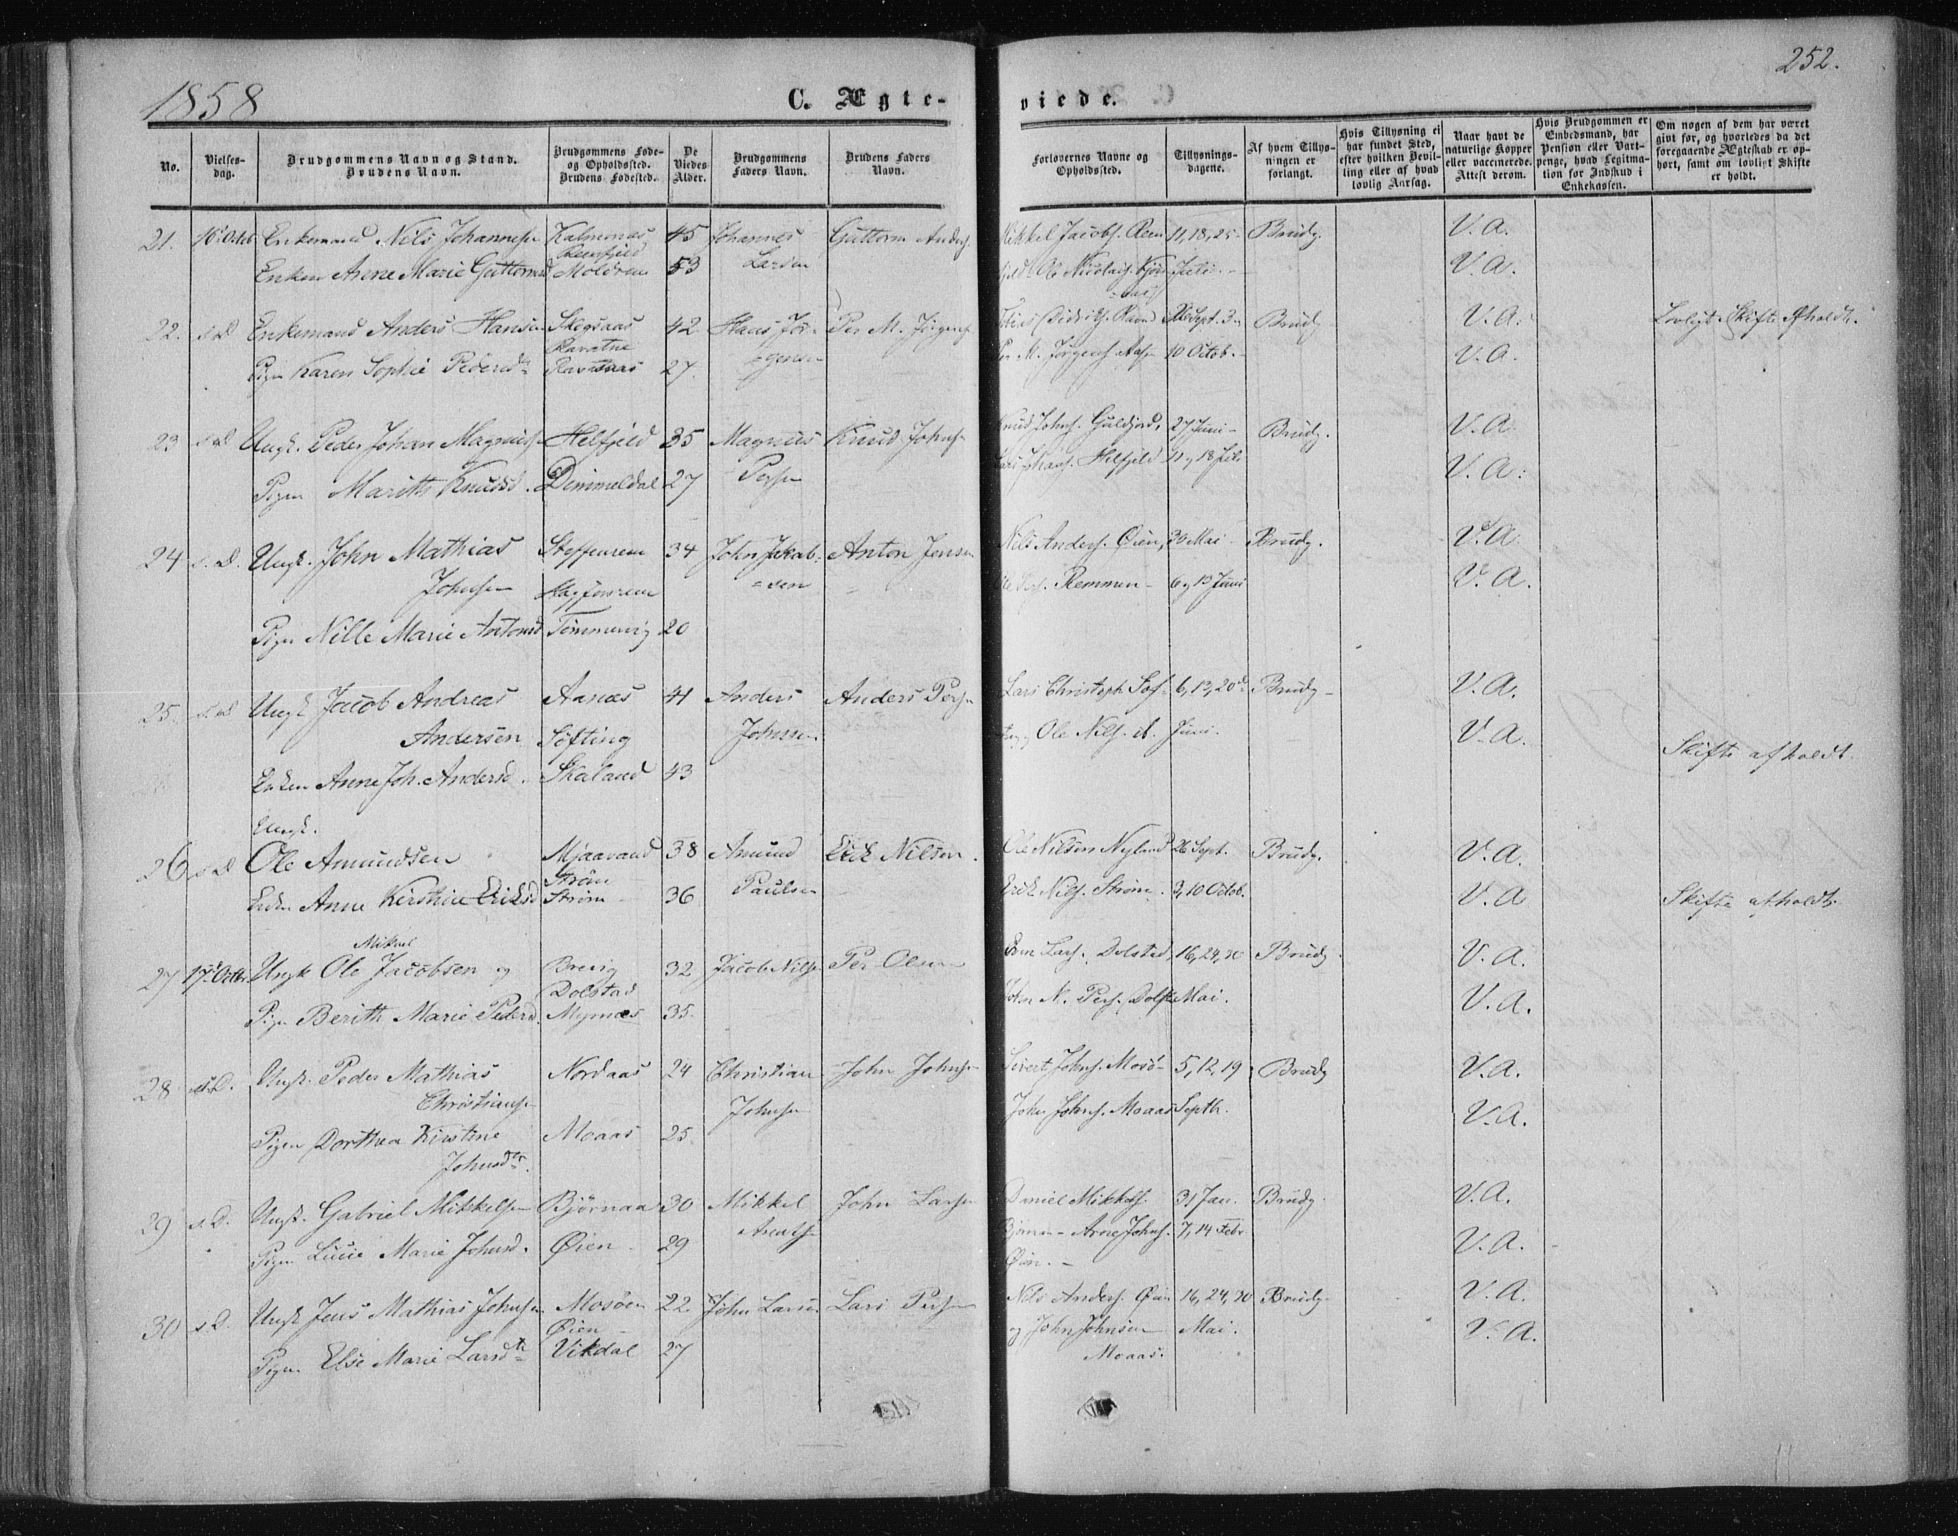 252.
1858
C. Ægte-
viede.
No.
Vielses-
dag.
Brudgommens Navn og Stand.
Brudens Navn.
Brudgommens Føde-
og Opholdssted.
Brudens Fødested.
De
Viedes
Alder.
Brudgommens
Faders Navn.
Brudens Faders
Navn.
Forlovernes Navne og
Opholdssted.
Tillysnings-
dagene.
Af hvem Tillys-
ningen er
forlangt.
Hvis Tillysning ei
har fundet Sted,
efter hvilken Bevil-
ling eller af hvad
lovlig Aarsag.
Naar havt de
naturlige Kopper
eller vaccinerede.
Attest derom.
Hvis Brudgommen er
Embedsmand, har
Pension eller Vart-
penge, hvad Legitma-
tion for Indskud i
Enkekassen.
Om nogen af dem har været
gift før, og hvorledes da det
foregaaende Ægteskab er op-
hørt, samt om lovligt Skifte
er holdt.
21. 16 Octob Enkemand Nils Johannesen 45 Johannes Guttorm Anders. Mikkel Jacobs. Reen 11, 18, 25 Brudg. V. A.
Enken Arene Marie Guttormsd Moldrem 53 Larsen Juli V. A.
22. s. D Enkemand Anders Hansen Skogsaas 42 Hans Jør- Per M. Jørgens. Sept. 3 Brudg V. A. Lovligt Skifte Afholdt.
Pigen Karen Sophie Pedersd 27 gensen Per M. Jørgens. 10 Octob. V. A.
23 s D Ungk. Peder Johan Magnus. Helfjeld 35 Magnus Knud Johns. Knud Johns. Guldjord, 27 Juni Brudg. V. A.
Pigen Marith Knudsd. Dimmeldal 27 Pers. Helfjeld 11 y 18 Juli V. A.
24 s. D. Ungk. John Mathias Steffenrem 34 John Jakob- Anton Jensen Nils Anders. Øien, 30 Mai Brudg. V. A.
Johnsen sen Remmen 6 y 13 Juni V. A.
Pigen Nille Marie Antonsd Tømmervig 20
25. s. D Ungk Jacob Andreas Aanes 41 Anders Anders Pers. Lars Christoph Sof- 6, 13, 20 Brudg V. A.
Andersen Søfting Johnsen Ole Nils. ib. Juni. V. A.
Enken Anne Joh. Andersd. Skaland 43 Skifte afholdt.
Ungk.
26 s D Ole Amundsen Mjaavand 38 Amund Erik Nilsen. Ole Nilsen Nyland 26 Sept. Brudg. V. A.
Strøm
Enken Anne Kirstine Eriksd Strøm 36 Paulsen Erik Nils. Strøm. 3, 10 Octob. V. A Skifte afholdt.
Mikael
27 17 Octbr. Ungk Ole Jacobsen og Brevig 32 Jacob Nils. Per Olsen Lars. Dolstad, 16, 24, 30 Brudg. V. A.
Dolstad
Pigen Berith Marie Pedersd. Mynes 35. John N. Pers. Dolst. Mai. V. A.
28. s. D. Ungk. Peder Mathias Nordaas 24 Christian John Johns. Sivert Johns. Mosø 5, 12, 19 Brudg V. A.
Christians. Johnsen John Johns. Moaas Septbr. V. A.
Pigen Dorthea Kirstine Moaas 25.
Johnsdtr.
29 s. D. Ungk. Gabriel Mikkelsen Bjørnaa 30 Mikkel John Larsen Daniel Mikkels. 31 Jan. Brudg. V. A.
Pigen Lucie Marie Johnsd. Øien 29 Arents. Arne Johns. 7, 14 Febr. V. A.
Øien.
30 s. D. Ungk Jens Mathias Johnsen Mosøen 22. John Larsen Lars Persen Nils Anders. Øien 16, 24, 30 Brudg. V. A.
Øien og John Johnsen Mai. V. A.
Pigen Else Marie Larsdtr Vikdal 27 Moaas.